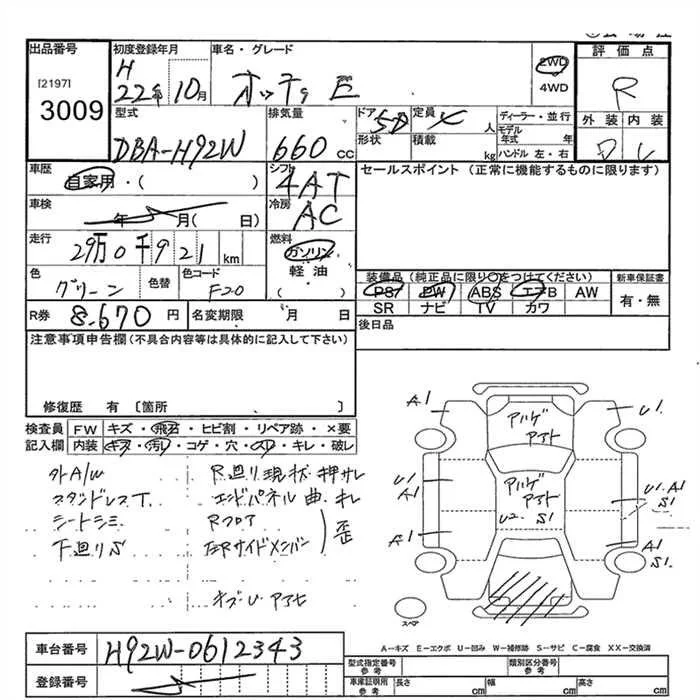 出品番号
[2197]
3009
初度登録年月
H
22年 10月
車名・グレード
オッティ E
2WD
4WD
評価点
R
外装 内装
D
型式
DBA-H92W
排気量
660 CC
ドア 5D
形状
定員 人
積載 kg
ディーラー・並行
モデル年式 年
ハンドル 左・右
車歴
自家用・( )
シフト
4AT
セールスポイント (正常に機能するものに限ります)
車検
年 月( 日)
冷房
AC
走行
29万0千921 km
燃料
ガソリン
軽油
( )
色
グリーン
色替
色コード
F20
装備品 (純正品に限り○をつけてください)
PS PW ABS エアB AW
SR ナビ TV カワ
新車保証書
有・無
R券 8.670 円
名変期限 月 日
後日品
注意事項申告欄(不具合内容等は具体的に記入して下さい)
修復歴 有 〔箇所 〕
検査員 FW キズ・飛石・ヒビ割・リペア跡・×要
記入欄 内装 キズ・汚レ・コゲ・穴・スレ・キレ・破レ
外A/W
スタットレスT
シートシミ
下廻りS
R廻り現状押サレ
エンドパネル曲、キレ
Rフロア
左右Rサイドメンバー
歪
キズ・U・アアセ
A1
U1
アルゲ
アアト
U1
A1
アルゲ
アアト
U2 S1
U1.A1
S1
A1
A1
S1
スペア
A-キズ E-エクボ U-凹み W-補修跡 S-サビ C-腐食 XX-交換済
車台番号 H92W-0612343
登録番号
型式指定番号 参考
類別区分番号 参考
車庫証明用 参考
長さ cm
幅 cm
高さ cm